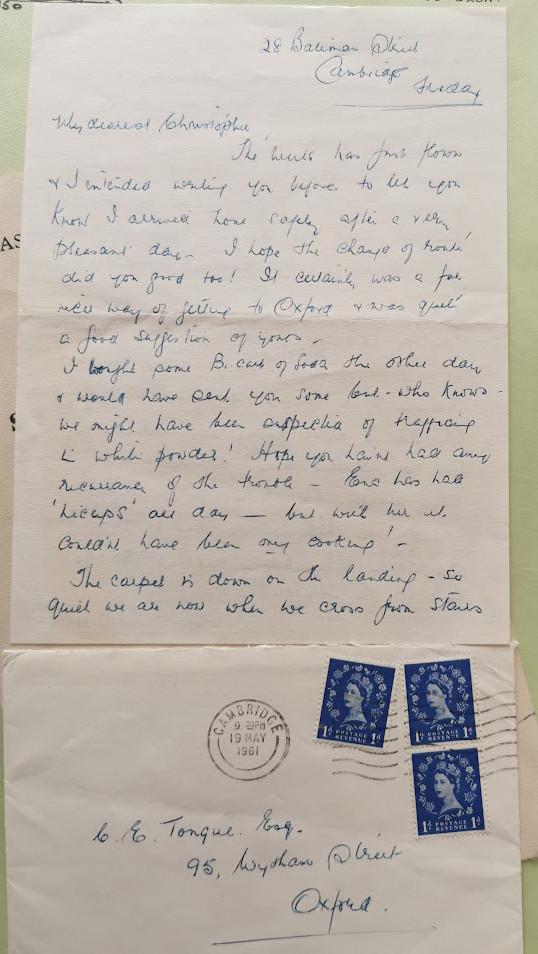 28 Bateman Street
Cambridge
Friday
My dearest Christopher
The week has just flown
& I intended writing you before to let you
know I arrived home safely after a very
pleasant day - I hope the change of route
did you good too! It certainly was a far
nicer way of getting to Oxford & was quite
a good suggestion of yours -
I bought some Bi. carb of Soda the other day
& would have sent you some but - who knows -
we might have been suspected of trafficing
in white powder! Hope you havn't had any
recurrance of the trouble - Eric has had
'hiccups' all day — but with her it
couldn't have been my cooking! -
The carpet is down on the landing - so
quiet we are now when we cross from stairs
CAMBRIDGE
9 PM
19 MAY
1961
1d POSTAGE REVENUE 1d
1d POSTAGE REVENUE 1d
1d POSTAGE REVENUE 1d
C. E. Tongue. Esq.
95, Wytham Street
Oxford.